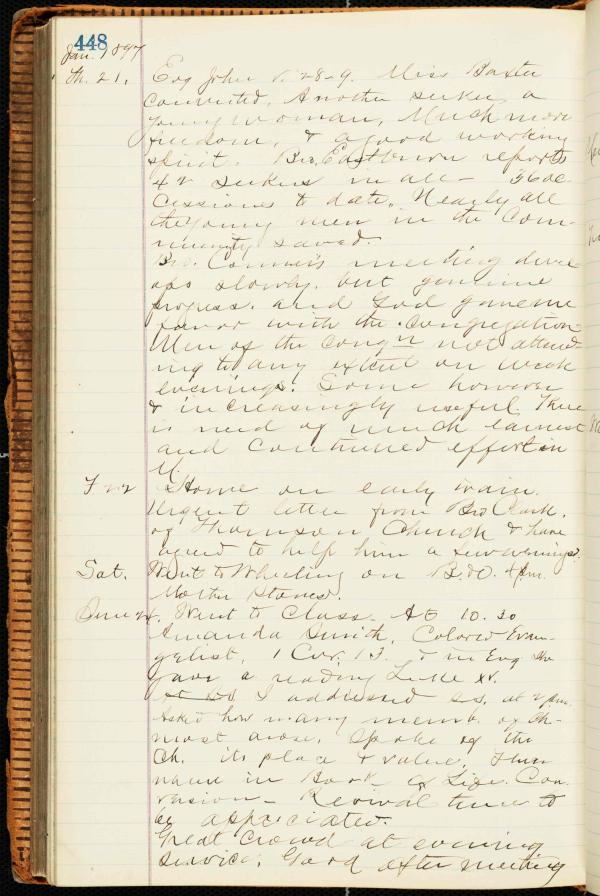 448
Jan. 1897
Th. 21. Evg John V. 28-9. Miss Baxter
converted. Another seeker, a
young woman. Much more
freedom, & a good working
spirit. Bro. Eastburn reports
42 seekers in all - 36 ac-
cessions to date. Nearly all
the young men in the com-
munity saved.
Bro. Conner's meeting devel-
ops slowly. but genuine
progress. and God gave me
favor with the congregation.
Men of the congn not attend-
ing to any extent on week
evenings. Some however
& increasingly useful. There
is need of much earnest
and continued effort in
it.
F 22 Home on early train.
Urgent letter from Bro Clark.
of Thomson Church & have
agreed to help him a few evenings.
Sat. Went to Wheeling on B. & O. 4 pm.
Mother Stones.
24. Went to Class. At 10.30
Amanda Smith, Colored Evan-
gelist, 1 Cor. 13. & in Evg she
gave a reading Luke XV.
I addressed S.S. at 2 pm.
Asked how many memb. of Ch-
most arose. Spoke of the
Ch. its place & value. Then
name in Book of Life. Con-
version - Revival time to
be appreciated.
Great crowd at evening
service. Good after meeting